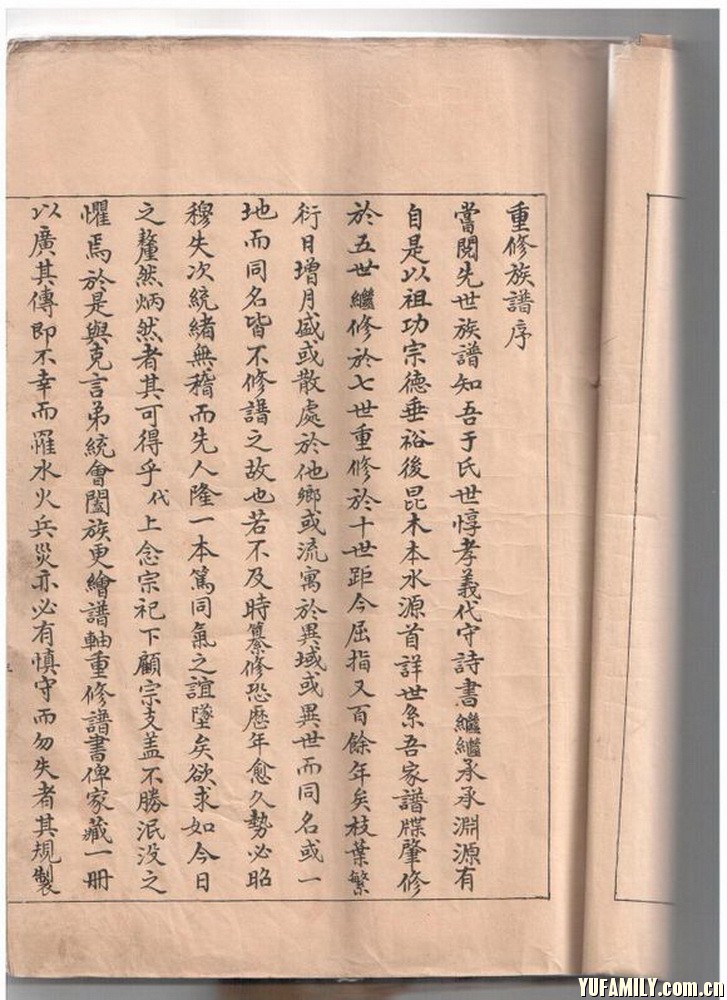 重修族譜序
嘗閱先世族譜知吾于氏世惇孝義代守詩書繼繼承承淵源有
自是以祖功宗德垂裕後昆木本水源首詳世系吾家譜牒肇修
於五世繼修於七世重修於十世距今屈指又百餘年矣枝葉繁
衍日增月盛或散處於他鄉或流寓於異域或異世而同名或一
地而同名皆不修譜之故也若不及時纂修恐歷年愈久勢必昭
穆失次統緒無稽而先人隆一本篤同氣之誼墜矣欲求如今日
之釐然炳然者其可得乎代上念宗祀下顧宗支盖不勝泯没之
懼焉於是與克言弟統會闔族更繪譜軸重修譜書俾家藏一冊
以廣其傳即不幸而罹水火兵災亦必有慎守而勿失者其規製
YUFAMILY.com.cn